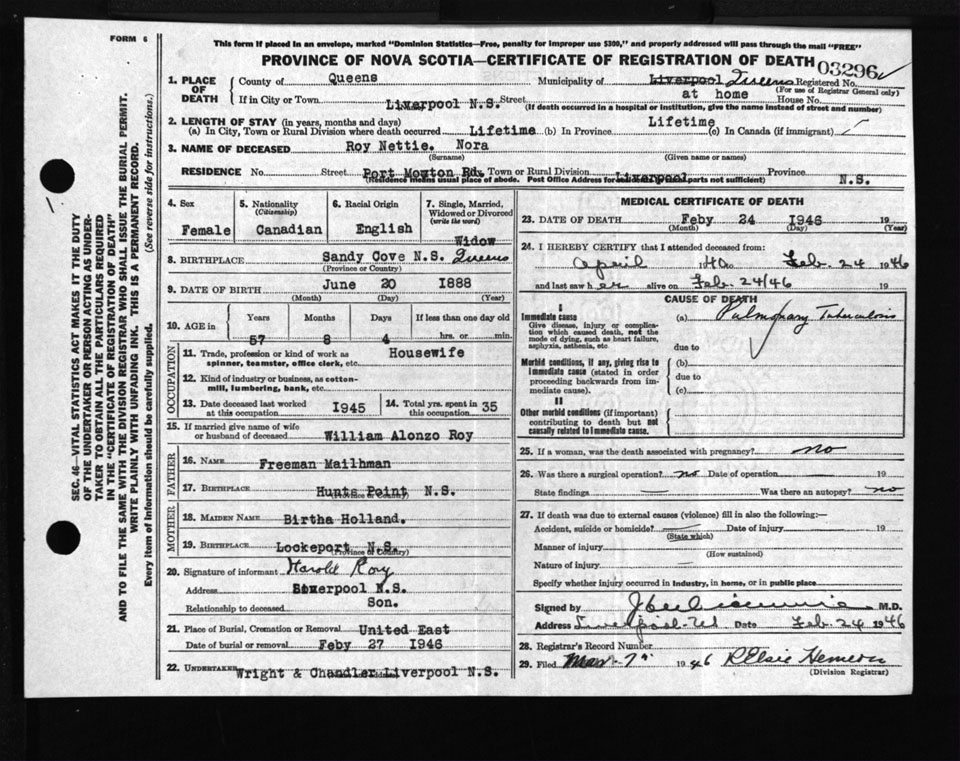 FORM 6
This form if placed in an envelope, marked "Dominion Statistics—Free, penalty for improper use $300," and properly addressed will pass through the mail "FREE"
PROVINCE OF NOVA SCOTIA—CERTIFICATE OF REGISTRATION OF DEATH
03296
1. PLACE OF DEATH
County of Queens Municipality of Liverpool Queens Registered No.
(For use of Registrar General only)
If in City or Town Liverpool N.S. Street at home House No.
(If death occurred in a hospital or institution, give the name instead of street and number)
2. LENGTH OF STAY (in years, months and days)
(a) In City, Town or Rural Division where death occurred Lifetime (b) In Province Lifetime (c) In Canada (if immigrant)
3. NAME OF DECEASED Roy Nettie. Nora
(Surname) (Given name or names)
RESIDENCE No. Street Port Mouton Rd. Town or Rural Division Liverpool Province N.S.
(Residence means usual place of abode. Post Office Address for parts not sufficient)
4. Sex Female
5. Nationality (Citizenship) Canadian
6. Racial Origin English
7. Single, Married, Widowed or Divorced (write the word) Widow
8. BIRTHPLACE Sandy Cove N.S. Queens
(Province or Country)
9. DATE OF BIRTH June 20 1888
(Month) (Day) (Year)
10. AGE in Years Months Days If less than one day old
57 8 4 hrs. or min.
OCCUPATION
11. Trade, profession or kind of work as spinner, teamster, office clerk, etc. Housewife
12. Kind of industry or business, as cotton-mill, lumbering, bank, etc.
13. Date deceased last worked at this occupation 1945
14. Total yrs. spent in this occupation 35
15. If married give name of wife or husband of deceased William Alonzo Roy
FATHER
16. NAME Freeman Mailhman
17. BIRTHPLACE Hunts Point N.S.
(Province or Country)
MOTHER
18. MAIDEN NAME Birtha Holland.
19. BIRTHPLACE Lockeport N.S.
(Province or Country)
20. Signature of informant Harold Roy
Address Liverpool N.S.
Relationship to deceased Son.
21. Place of Burial, Cremation or Removal United East
Date of burial or removal Feby 27 1946
22. UNDERTAKER Wright & Chandler Liverpool N.S.
MEDICAL CERTIFICATE OF DEATH
23. DATE OF DEATH Feby 24 1946 19
(Month) (Day) (Year)
24. I HEREBY CERTIFY that I attended deceased from:
April 1940 to Feb. 24 1946
and last saw her alive on Feb. 24/46
CAUSE OF DEATH
I
Immediate cause
Give disease, injury or complication which caused death, not the mode of dying, such as heart failure, asphyxia, asthenia, etc.
(a) Pulmonary Tuberculosis
due to
Morbid conditions, if any, giving rise to immediate cause (stated in order proceeding backwards from immediate cause).
(b)
due to
(c)
II
Other morbid conditions (if important) contributing to death but not causally related to immediate cause.
25. If a woman, was the death associated with pregnancy? no
26. Was there a surgical operation? no Date of operation 19
State findings — Was there an autopsy? no
27. If death was due to external causes (violence) fill in also the following:—
Accident, suicide or homicide? — Date of injury 19
(State which)
Manner of injury
(How sustained)
Nature of injury —
Specify whether injury occurred in industry, in home, or in public place
Signed by M.D.
Address Liverpool NS Date Feb. 24 1946
28. Registrar's Record Number
29. Filed Mar 7 1946 R Elsie Hemeon
(Division Registrar)
SEC. 46—VITAL STATISTICS ACT MAKES IT THE DUTY
OF THE UNDERTAKER OR PERSON ACTING AS UNDER-
TAKER TO OBTAIN ALL THE PARTICULARS REQUIRED
IN THE "CERTIFICATE OF REGISTRATION OF DEATH"
AND TO FILE THE SAME WITH THE DIVISION REGISTRAR WHO SHALL ISSUE THE BURIAL PERMIT.
WRITE PLAINLY WITH UNFADING INK. THIS IS A PERMANENT RECORD.
Every item of Information should be carefully supplied. (See reverse side for instructions.)